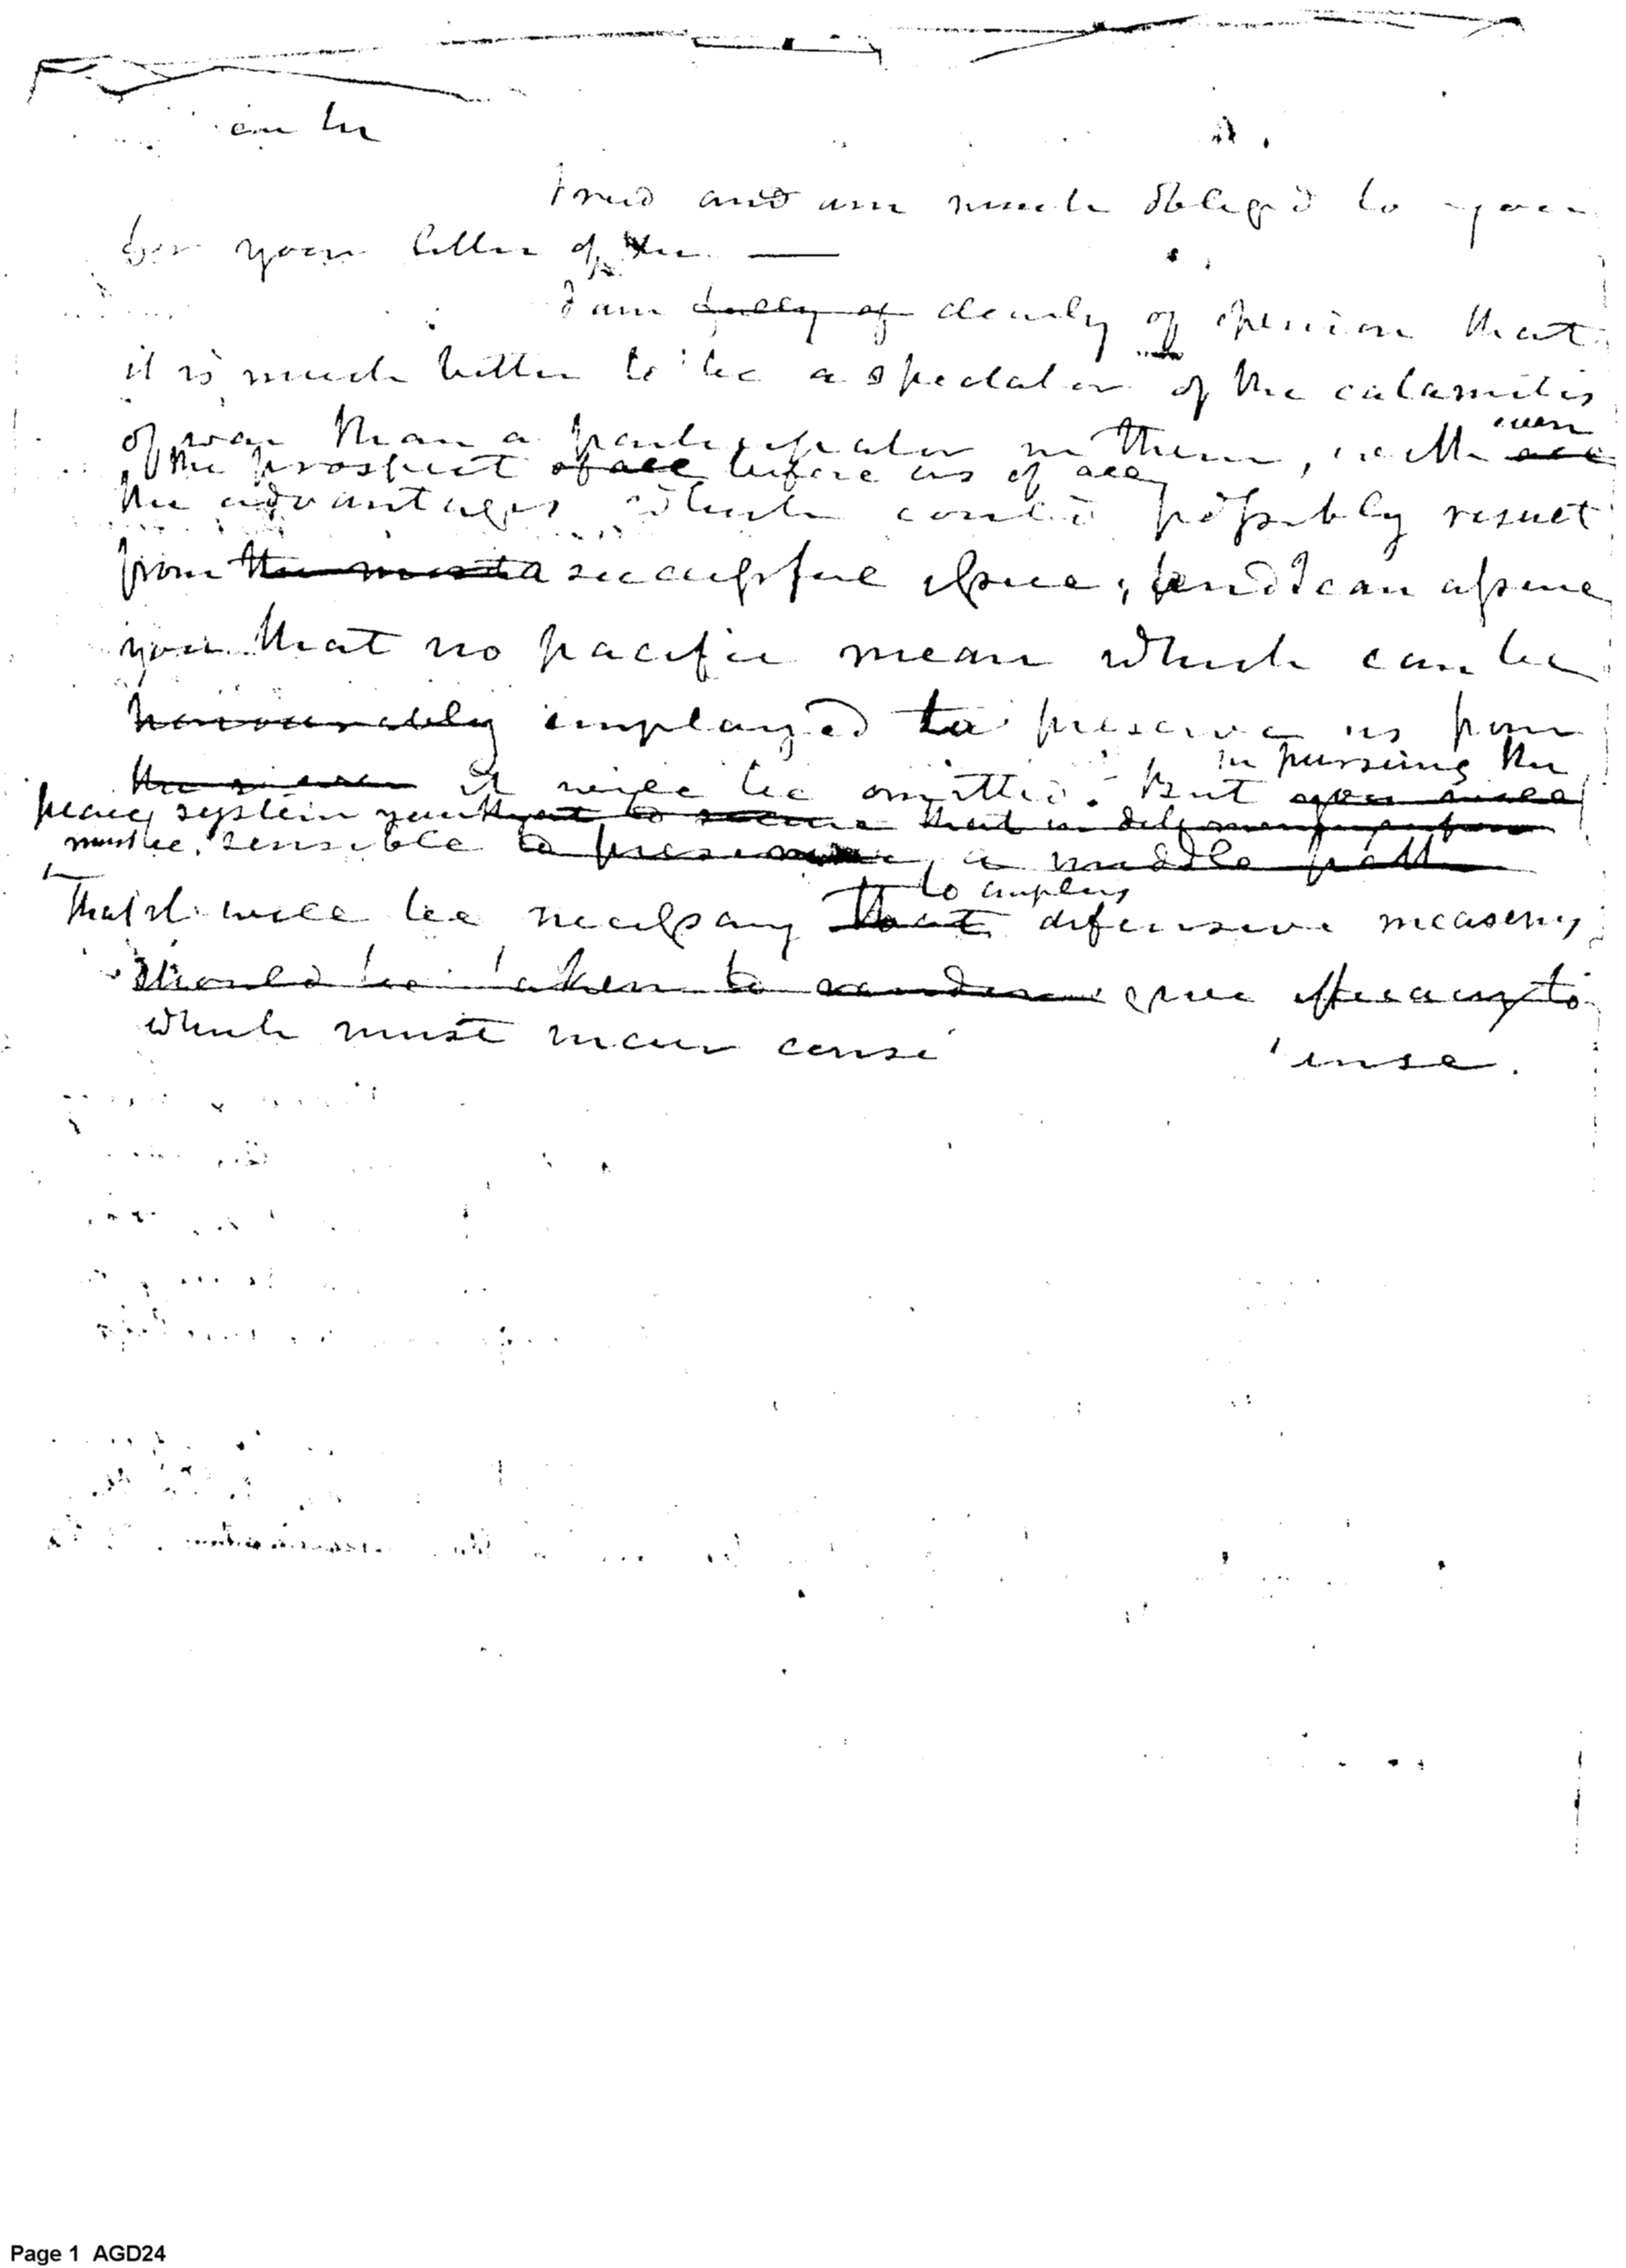 can be
I rec'd and am much obliged to you
for your letter of the —
I am fully of clearly of opinion that
it is much better to be a spectator of the calamities
of war than a participator in them, with all even
the prospect of all before us of all
the advantages which could possibly result
from the most a successful issue; and I can assure
you that no pacific mean which can be
honourably employed to preserve us from
it will be omitted. But you will in pursuing the
peace system you
must be sensible to a middle path
that it will be necessary that to employ defensive measures
should be taken to render give efficacy to
which must incur